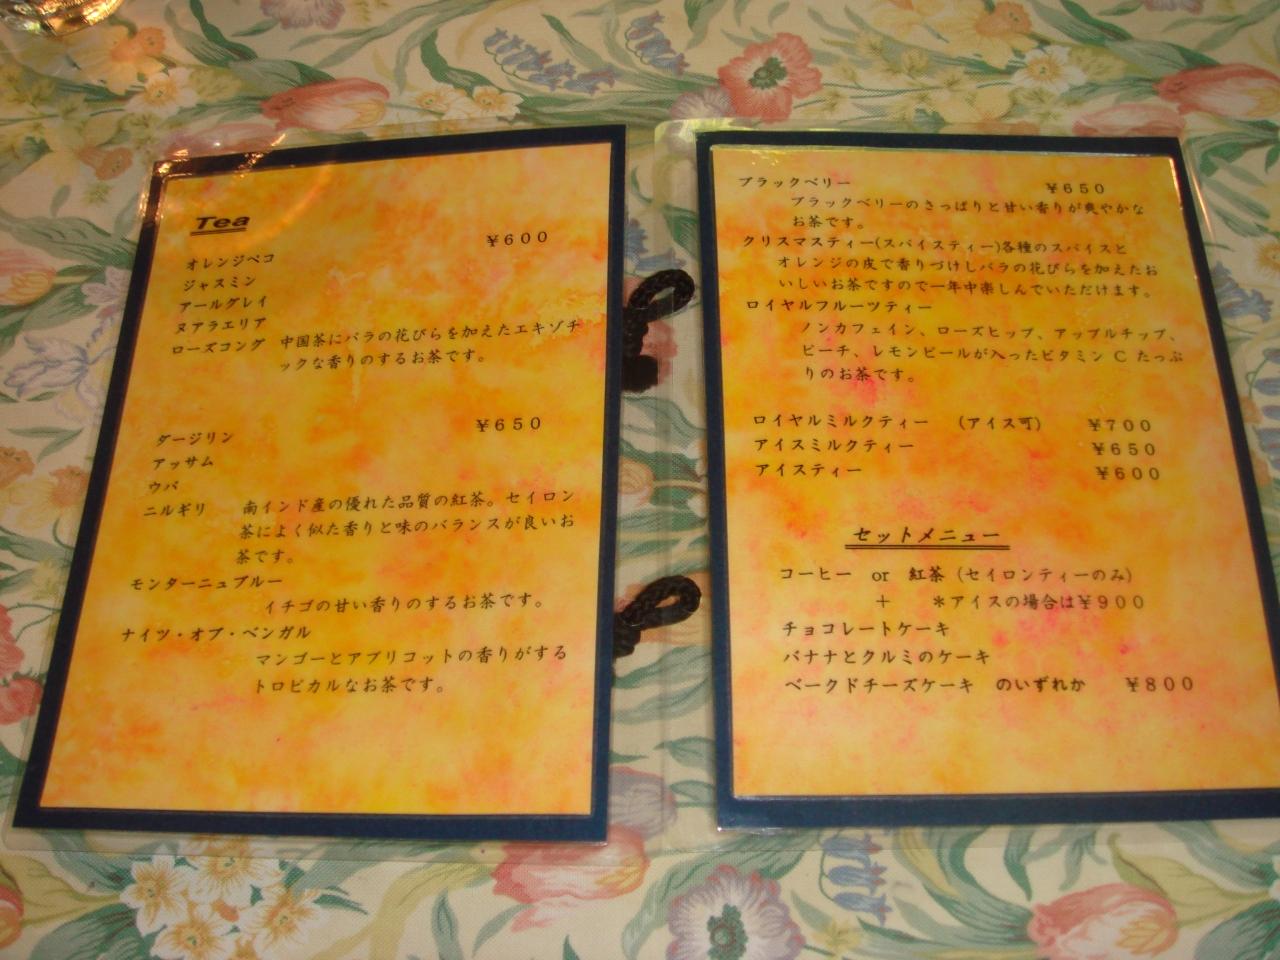 Tea
¥600
オレンジペコ
ジャスミン
アールグレイ
ヌアラエリア
ローズコング 中国茶にバラの花びらを加えたエキゾチ
ックな香りのするお茶です。
¥650
ダージリン
アッサム
ウバ
ニルギリ 南インド産の優れた品質の紅茶。セイロン
茶によく似た香りと味のバランスが良いお
茶です。
モンターニュブルー
イチゴの甘い香りのするお茶です。
ナイツ・オブ・ベンガル
マンゴーとアプリコットの香りがする
トロピカルなお茶です。
ブラックベリー ¥650
ブラックベリーのさっぱりと甘い香りが爽やかな
お茶です。
クリスマスティー(スパイスティー)各種のスパイスと
オレンジの皮で香りづけしバラの花びらを加えたお
いしいお茶ですので一年中楽しんでいただけます。
ロイヤルフルーツティー
ノンカフェイン、ローズヒップ、アップルチップ、
ピーチ、レモンピールが入ったビタミンCたっぷ
りのお茶です。
ロイヤルミルクティー (アイス可) ¥700
アイスミルクティー ¥650
アイスティー ¥600
セットメニュー
コーヒー or 紅茶(セイロンティーのみ)
+ *アイスの場合は¥900
チョコレートケーキ
バナナとクルミのケーキ
ベークドチーズケーキ のいずれか ¥800